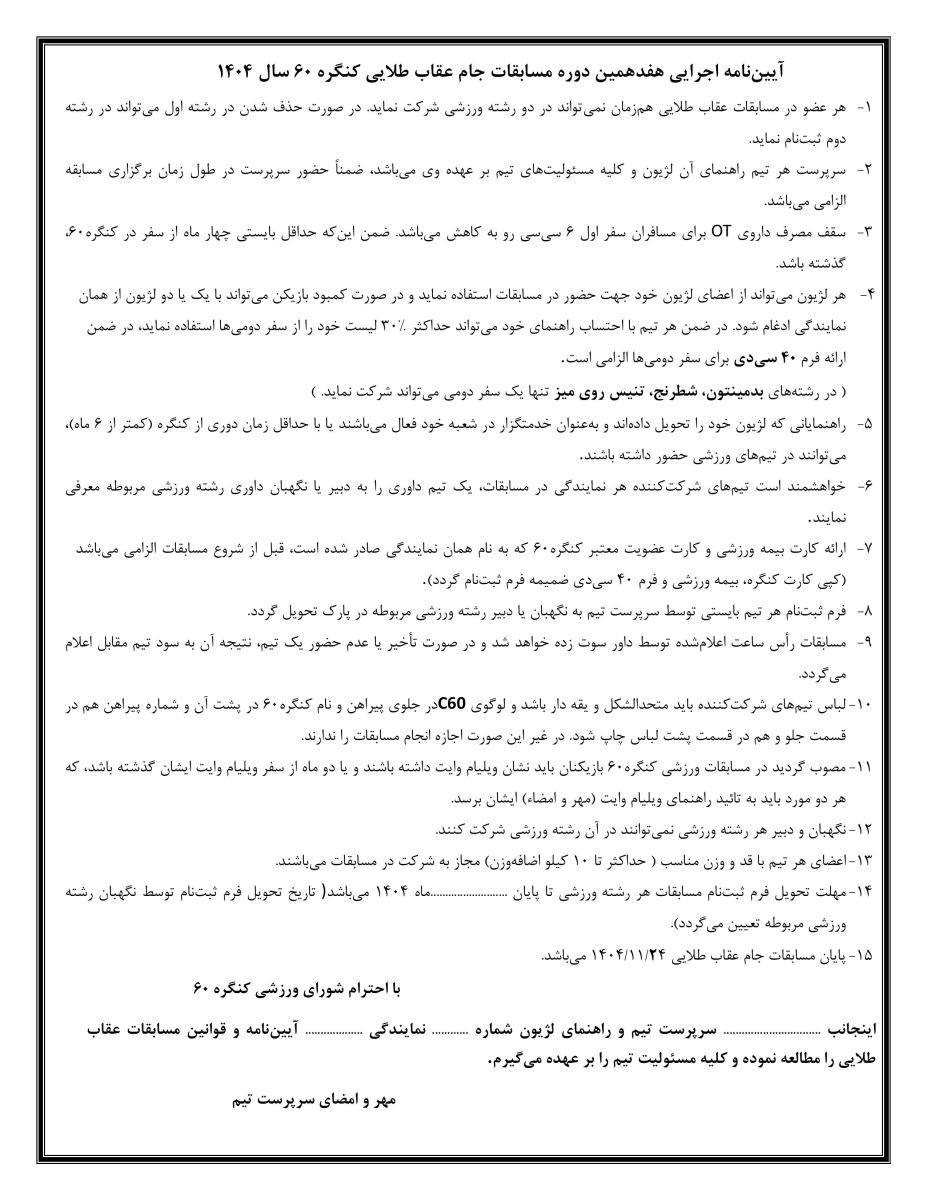 آیین‌نامه اجرایی هفدهمین دوره مسابقات جام عقاب طلایی کنگره ۶۰ سال ۱۴۰۴
۱- هر عضو در مسابقات عقاب طلایی هم‌زمان نمی‌تواند در دو رشته ورزشی شرکت نماید. در صورت حذف شدن در رشته اول می‌تواند در رشته
دوم ثبت‌نام نماید.
۲- سرپرست هر تیم راهنمای آن لژیون و کلیه مسئولیت‌های تیم بر عهده وی می‌باشد، ضمناً حضور سرپرست در طول زمان برگزاری مسابقه
الزامی می‌باشد.
۳- سقف مصرف داروی OT برای مسافران سفر اول ۶ سی‌سی رو به کاهش می‌باشد. ضمن این‌که حداقل بایستی چهار ماه از سفر در کنگره۶۰،
گذشته باشد.
۴- هر لژیون می‌تواند از اعضای لژیون خود جهت حضور در مسابقات استفاده نماید و در صورت کمبود بازیکن می‌تواند با یک یا دو لژیون از همان
نمایندگی ادغام شود. در ضمن هر تیم با احتساب راهنمای خود می‌تواند حداکثر ۳۰٪ لیست خود را از سفر دومی‌ها استفاده نماید، در ضمن
ارائه فرم ۴۰ سی‌دی برای سفر دومی‌ها الزامی است.
( در رشته‌های بدمینتون، شطرنج، تنیس روی میز تنها یک سفر دومی می‌تواند شرکت نماید. )
۵- راهنمایانی که لژیون خود را تحویل داده‌اند و به‌عنوان خدمتگزار در شعبه خود فعال می‌باشند یا با حداقل زمان دوری از کنگره (کمتر از ۶ ماه)،
می‌توانند در تیم‌های ورزشی حضور داشته باشند.
۶- خواهشمند است تیم‌های شرکت‌کننده هر نمایندگی در مسابقات، یک تیم داوری را به دبیر یا نگهبان داوری رشته ورزشی مربوطه معرفی
نمایند.
۷- ارائه کارت بیمه ورزشی و کارت عضویت معتبر کنگره۶۰ که به نام همان نمایندگی صادر شده است، قبل از شروع مسابقات الزامی می‌باشد
(کپی کارت کنگره، بیمه ورزشی و فرم ۴۰ سی‌دی ضمیمه فرم ثبت‌نام گردد).
۸- فرم ثبت‌نام هر تیم بایستی توسط سرپرست تیم به نگهبان یا دبیر رشته ورزشی مربوطه در پارک تحویل گردد.
۹- مسابقات رأس ساعت اعلام‌شده توسط داور سوت زده خواهد شد و در صورت تأخیر یا عدم حضور یک تیم، نتیجه آن به سود تیم مقابل اعلام
می‌گردد.
۱۰- لباس تیم‌های شرکت‌کننده باید متحدالشکل و یقه دار باشد و لوگوی C60در جلوی پیراهن و نام کنگره۶۰ در پشت آن و شماره پیراهن هم در
قسمت جلو و هم در قسمت پشت لباس چاپ شود. در غیر این صورت اجازه انجام مسابقات را ندارند.
۱۱- مصوب گردید در مسابقات ورزشی کنگره۶۰ بازیکنان باید نشان ویلیام وایت داشته باشند و یا دو ماه از سفر ویلیام وایت ایشان گذشته باشد، که
هر دو مورد باید به تائید راهنمای ویلیام وایت (مهر و امضاء) ایشان برسد.
۱۲- نگهبان و دبیر هر رشته ورزشی نمی‌توانند در آن رشته ورزشی شرکت کنند.
۱۳- اعضای هر تیم با قد و وزن مناسب ( حداکثر تا ۱۰ کیلو اضافه‌وزن) مجاز به شرکت در مسابقات می‌باشند.
۱۴- مهلت تحویل فرم ثبت‌نام مسابقات هر رشته ورزشی تا پایان ...........................ماه ۱۴۰۴ می‌باشد( تاریخ تحویل فرم ثبت‌نام توسط نگهبان رشته
ورزشی مربوطه تعیین می‌گردد).
۱۵- پایان مسابقات جام عقاب طلایی ۱۴۰۴/۱۱/۲۴ می‌باشد.
با احترام شورای ورزشی کنگره ۶۰
اینجانب ................................ سرپرست تیم و راهنمای لژیون شماره ............ نمایندگی ................... آیین‌نامه و قوانین مسابقات عقاب
طلایی را مطالعه نموده و کلیه مسئولیت تیم را بر عهده می‌گیرم.
مهر و امضای سرپرست تیم